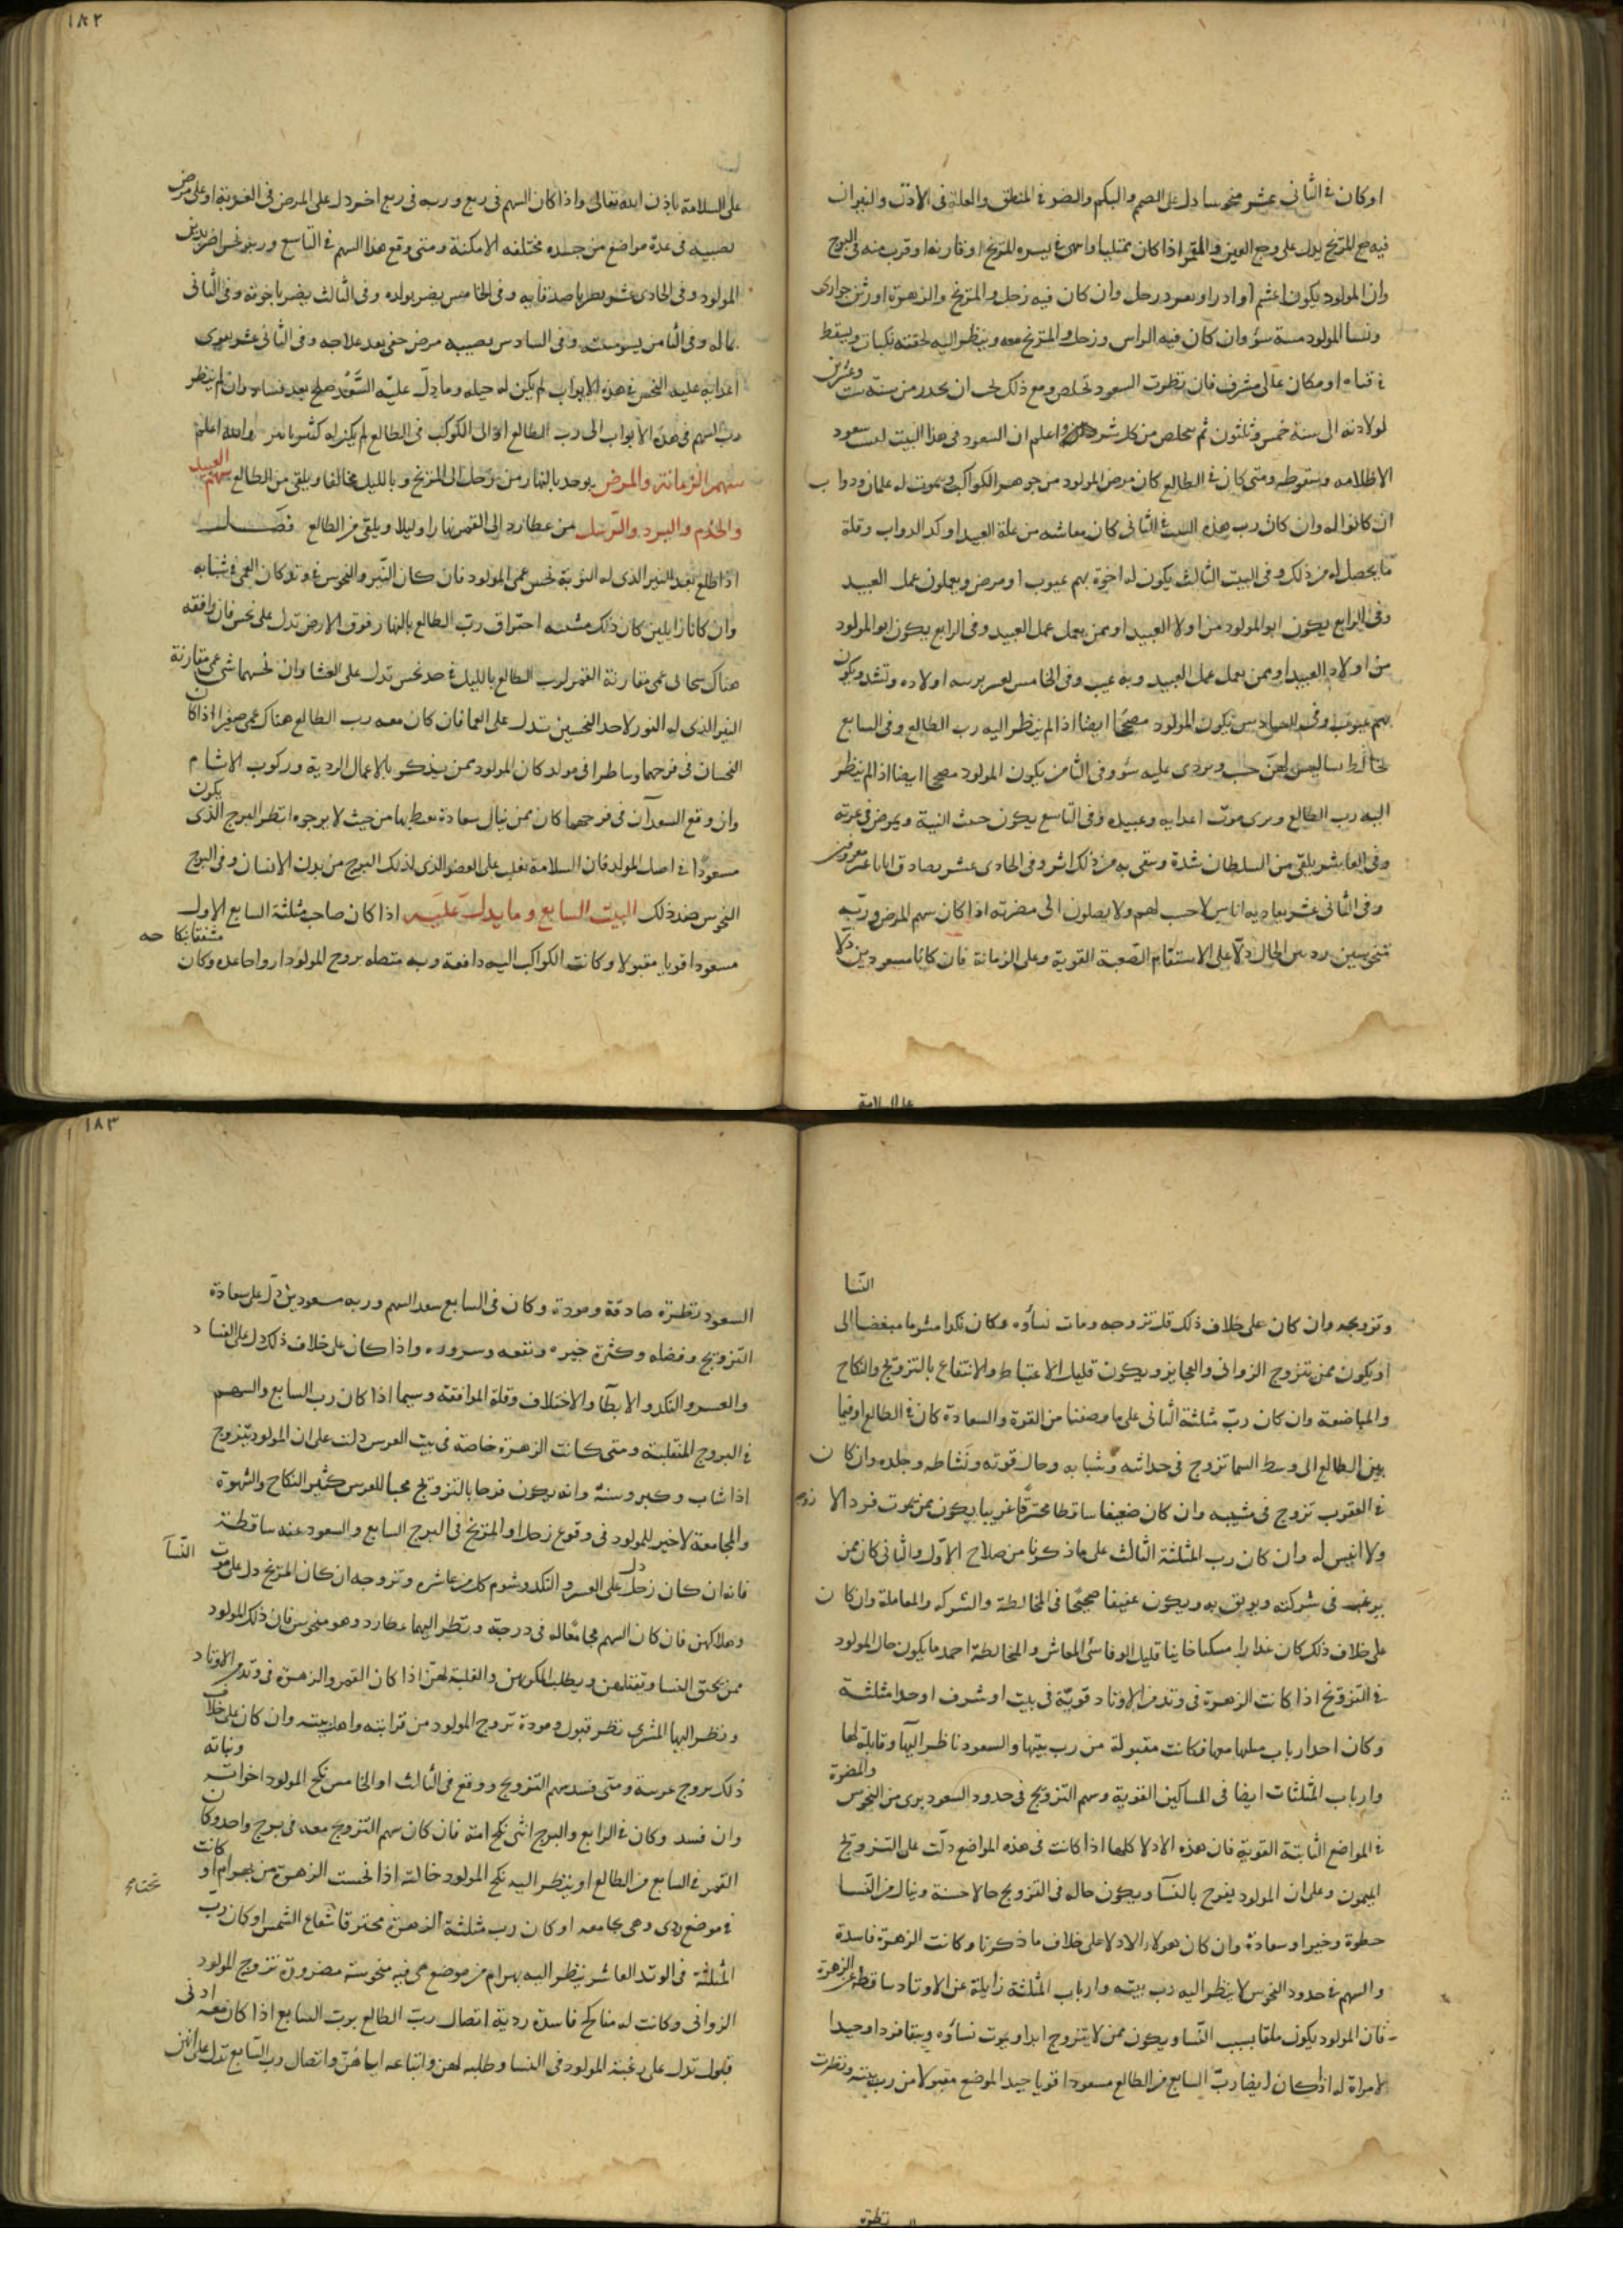 ١٨٢
او كان فى الثانى عشر منحوسا دل على الصمم والبكم والضر فى المنطق والعلة فى الاذن والنيران
فيه مع المريخ يدل على وجع العين والقمر اذا كان ممتليا واحمى فى ليسره المريخ او قارنه او قرب منه فى البرج
وان المولود يكون اعشم او ادرا وبعود زحل وان كان فيه زحل والمريخ والزهرة اورثن جوارى
ونسا المولود مسة سوء وان كان فيه الراس وزحل والمريخ معه وينظر اليه لحقته نكبات ويسقط
فى قناه او مكان عالى مشرف فان نظرت السعود تخلص ومع ذلك يجب ان يحذر من سنة ست وعشرين
لولادته الى سنة خمس وثلثون ثم يتخلص من كل شر واعلم ان السعود فى هذا البيت ليست سعود
الاظلامه وسقوطه ومتى كان فى الطالع كان مرض المولود من جوهر الكواكب ويموت له غلمان ودواب
ان كانوا له وان كان رب هذه البيت فى الثانى كان معاشه من غلة العبيد او كد الدواب وقلة
ما يحصل له من ذلك وفى البيت الثالث يكون له اخوة بهم عيوب او مرض ويعملون عمل العبيد
وفى الرابع يكون ابو المولود من اولاد العبيد او ممن يعمل عمل العبيد وفى الرابع يكون ابو المولود
من اولاد العبيد او ممن يعمل عمل العبيد وبه عيب وفى الخامس تعسر تربية اولاده وتشد ويكون
بهم عيوب وفى السادس يكون المولود مصححا ايضا اذا لم ينظر اليه رب الطالع وفى السابع
يخالط نسا ليس لهن حسب ويردى عليه سوء وفى الثامن يكون المولود مصححا ايضا اذا لم ينظر
اليه رب الطالع ويرى موت اعدايه وعبيده وفى التاسع يكون خبث النية ويمرض فى غربته
وفى العاشر يلقى من السلطان شدة وسقى به من ذلك اثر وفى الحادى عشر يصادق اناسا غير معروفين
وفى الثانى عشر يعاديه اناس لا حسب لهم ولا يصلون الى مضرته اذا كان سهم المرض وربه
منحوسين رديين الحال دلا على الاسقام الصعبة القوية وعلى الزمانة فان كانا مسعودين دلا
على السلامة
على السلامة باذن الله تعالى واذا كان السهم فى ربع وربه فى ربع اخر دل على المرض فى الغربة او على مرض
يصيبه فى عدة مواضع من جسده مختلفه الامكنة ومتى وقع هذا السهم فى التاسع وربه نحس اضر بدين
المولود وفى الحادى عشر يضر باصدقايه وفى الخامس يضر بولده وفى الثالث يضر باخوته وفى الثانى
بماله وفى الثامن يسو ميتته وفى السادس يصيبه مرض خفى بعد علاجه وفى الثانى عشر يقوى
اعدايه عليه النحس فى هذه الابواب لم يكن له حيله وما دل عليه السعد صلح بعد فساد وان لم ينظر
رب السهم فى هذه الابواب الى رب الطالع او الى الكوكب فى الطالع لم يكن له كثير ماثر والله اعلم
سهم الزمانة والمرض يوخد بالنهار من زحل الى المريخ وبالليل مخالفا ويلقى من الطالع سهم العبيد
والخدم والبرد والرسل من عطارد الى القمر نهارا وليلا ويلقى من الطالع فصل
اذا طلع بعد النير الذى له النوبة نحس عمى المولود فان كان النير والنحوس فى وتد كان العمى فى شبابه
وان كانا زايلين كان ذلك مشسه احتراق رب الطالع بالنهار فوق الارض تدل على نحس فان وافقه
هناك سحابى عمى مقارنة القمر لرب الطالع بالليل فى حد نحس تدل على العشا وان نحسهما شى عمى مقارنة
النير الذى له النور لاحد النحسين تدل على العما فان كان معه رب الطالع هناك عمى صغيرا اذا كان
النحسان فى فرحهما وناظرا فى مولد كان المولود ممن يذكر بالاعمال الردية وركوب الاشام
وان وقع السعدان فى فرحهما كان ممن ينال سعادة يعطيها من حيث لا يرجوه انظر البرج الذى يكون
مسعودا فى اصل المولد فان السلامة تغلب على العضو الذى لذلك البرج من بدن الانسان وفى البرج
النحوس ضد ذلك البيت السابع وما يدل عليه اذا كان صاحب مثلثة السابع الاول
مسعودا قويا مقبولا وكانت الكواكب اليه دافعة وبه متصله يزوج المولود ارواحا عده وكان
١٨٣
النسا
وتزويجه وان كان على خلاف ذلك قل تزوجه ومات نساؤه وكان نكدا مشوما مبغضا الى
او يكون ممن يتزوج الزوانى والعجايز ويكون قليل الاغتباط والانتفاع بالتزويج والنكاح
والمباضعة وان كان رب مثلثة الثانى على ما وصفنا من القوة والسعادة كان فى الطالع او فيما
بين الطالع الى وسط السما تزوج فى حداثته وشبابه وحال قوته ونشاطه وجلده وان كان
فى الغروب تزوج فى مشيبه وان كان ضعيفا ساقطا محترقا غريبا يكون ممن يموت فردا لا زوج
ولا انيس له وان كان رب المثلثة الثالث على ما ذكرنا من صلاح الاول والثانى كان ممن
يرغب فى شركته ويوثق به ويكون عفيفا صحيحا فى المخالطة والشركه والمعاملة وان كان
على خلاف ذلك كان غدارا مسكيا خاينا قليل الوفا سئ المعاش والمخالطة احمد ما يكون حال المولود
فى التزويج اذا كانت الزهرة فى وتد من الاوتاد قوية فى بيت او شرف او حد او مثلثة
وكان احد ارباب مثلثها معها فكانت مقبولة من رب بيتها والسعود ناظر اليها وقابلة لها
وارباب المثلثات ايضا فى المساكين القوية وسهم التزويج فى حدود السعود برى من النحوس والمضرة
فى المواضع الثابتة القوية فان هذه الادلا كلها اذا كانت فى هذه المواضع دلت على التزويج
الميمون وعلى ان المولود يفرح بالنسآ ويكون حاله فى التزويج حالا حسنة وينال من النسا
حظوة وخيرا وسعادة وان كان هولاء الادلا على خلاف ما ذكرنا وكانت الزهرة فاسدة
والسهم فى حدود النحوس لا ينظر اليه رب بيته وارباب المثلثة زايلة عن الاوتاد ساقطة عن الزهرة
فان المولود يكون ملقا بسبب النسا ويكون ممن لا يتزوج ابدا ويموت نساؤه ويبقا فردا وحيدا
لا مراة له اذا كان ايضا رب السابع من الطالع مسعودا قويا جيد الموضع مقبولا من رب بيته ونظرت
السعود نظرة صادقة ومودة وكان فى السابع سعد السهم وربه مسعودين دل على سعادة
التزويج وفضله وكثرة خيره ونفعه وسروره واذا كان على خلاف ذلك دل على الفساد
والعسر والنكد والابطا والاختلاف وقلة الموافقة وسيما اذا كان رب السابع والسهم
فى البروج المنقلبة ومتى كانت الزهرة خاصة فى بيت العرس دلت على ان المولود يتزوج
اذا شاب وكبر وسنه وانه يكون فرحا بالتزويج محبا للعرس كثير النكاح والشهوة
والمجامعة لا خير للمولود فى وقوع زحل او المريخ فى البرج السابع والسعود عنه ساقطة
فانه ان كان زحل دل على العسر والنكد وشوم كل من عاشره وتزوجه ان كان المريخ دل على موت النسآ
وهلاكهن فان كان السهم مجامعا له فى درجة ونظر اليهما عطارد وهو منحوس فان ذلك المولود
ممن يخنق النسا ويقتلهن ويطلب المكر بهن والغلبة لهن اذا كان القمر والزهرة فى وتد من الاوتاد
ونظر اليها المشترى نظر قبول ومودة تزوج المولود من قرابته واهل بيته وان كان على خلاف
ذلك يزوج غريبة ومتى فسد سهم التزويج ووقع فى الثالث او الخامس نكح المولود اخواته وبناته
وان فسد وكان فى الرابع والبرج انثى نكح امه فان كان سهم التزويج معه فى برج واحد وكان
القمر فى السابع من الطالع او ينظر اليه نكح المولود خالته اذا نحست الزهرة من بهرام او كانت
فى موضع ردى وهى مجامعه او كان رب مثلثة الزهرة محترقا شعاع الشمس او كان رب
المثلثة فى الوتد العاشر ينظر اليه بهرام من موضع هى فيه منحوسة مضرورة تزوج المولود
الزوانى وكانت له مناكح فاسدة ردية اتصال رب الطالع برب السابع اذا كان معه ادنى
قبول تدل على رغبة المولود فى النسا وطلبه لهن واتباعه اياهن واتصال رب السابع تدل على انهن